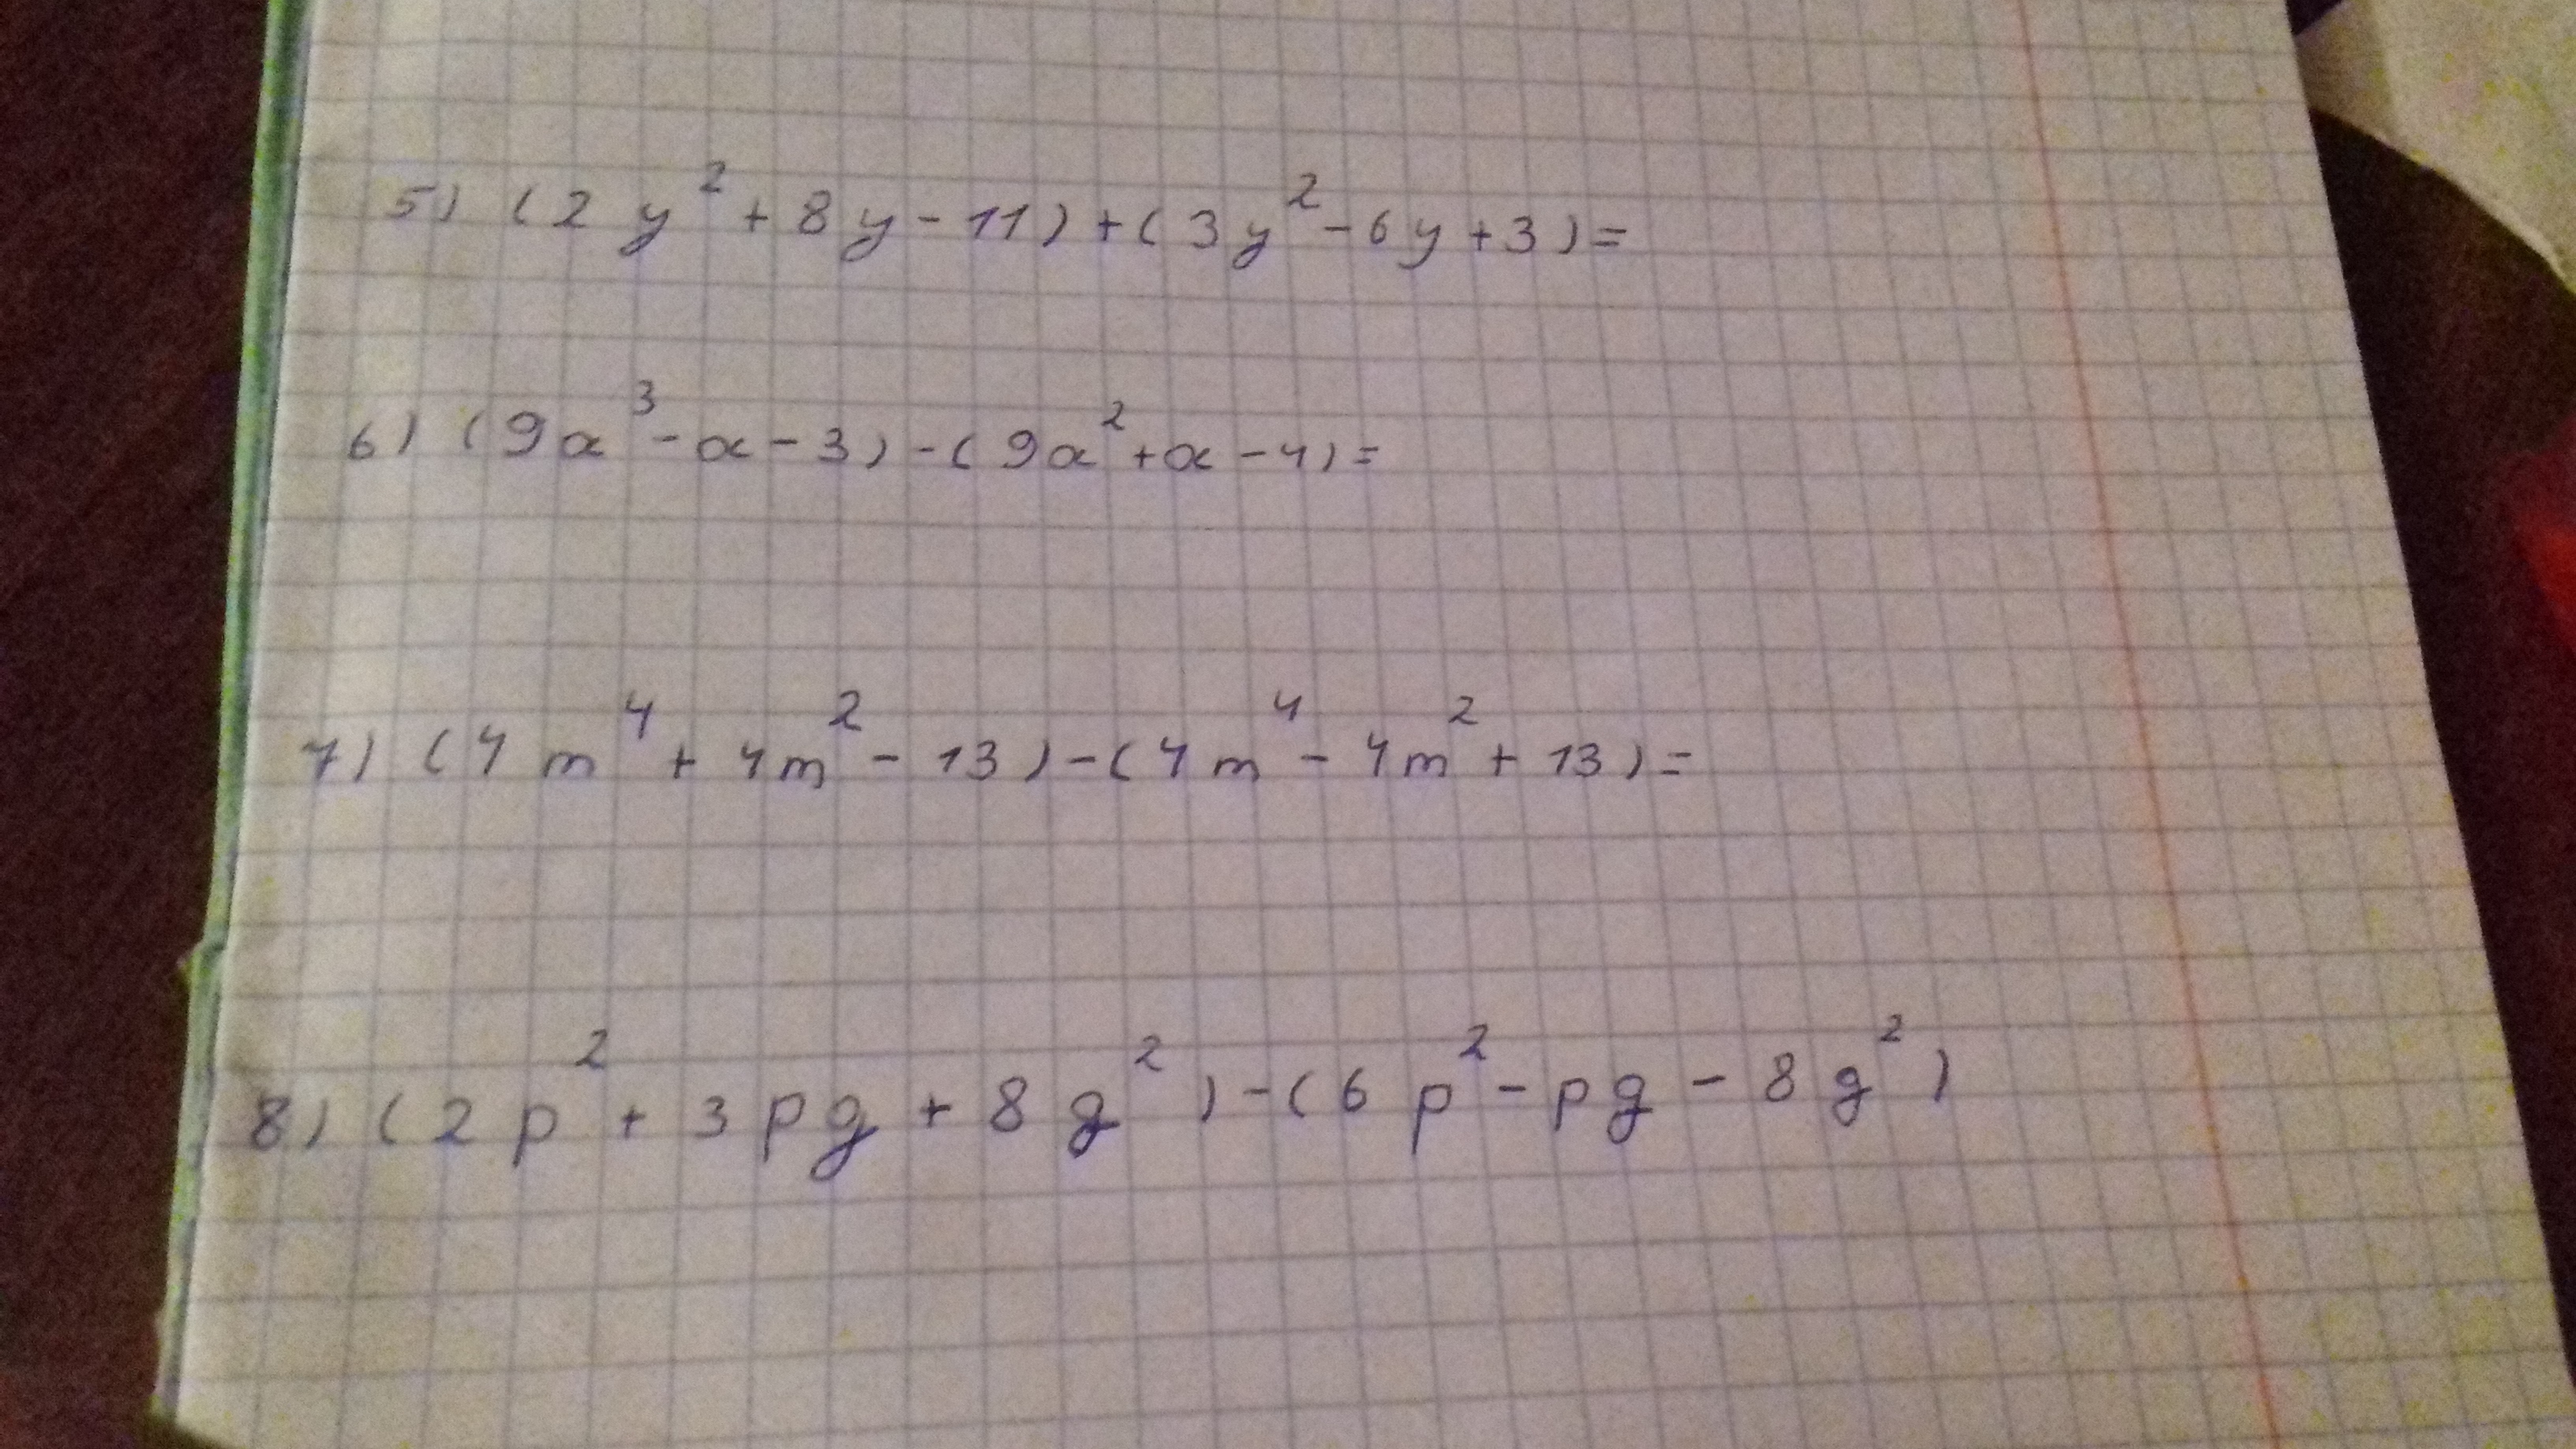 5) (2y² + 8y - 11) + (3y² - 6y + 3) =
6) (9a³ - a - 3) - (9a² + a - 4) =
7) (4m⁴ + 4m² - 13) - (4m⁴ - 4m² + 13) =
8) (2p² + 3pg + 8g²) - (6p² - pg - 8g²)